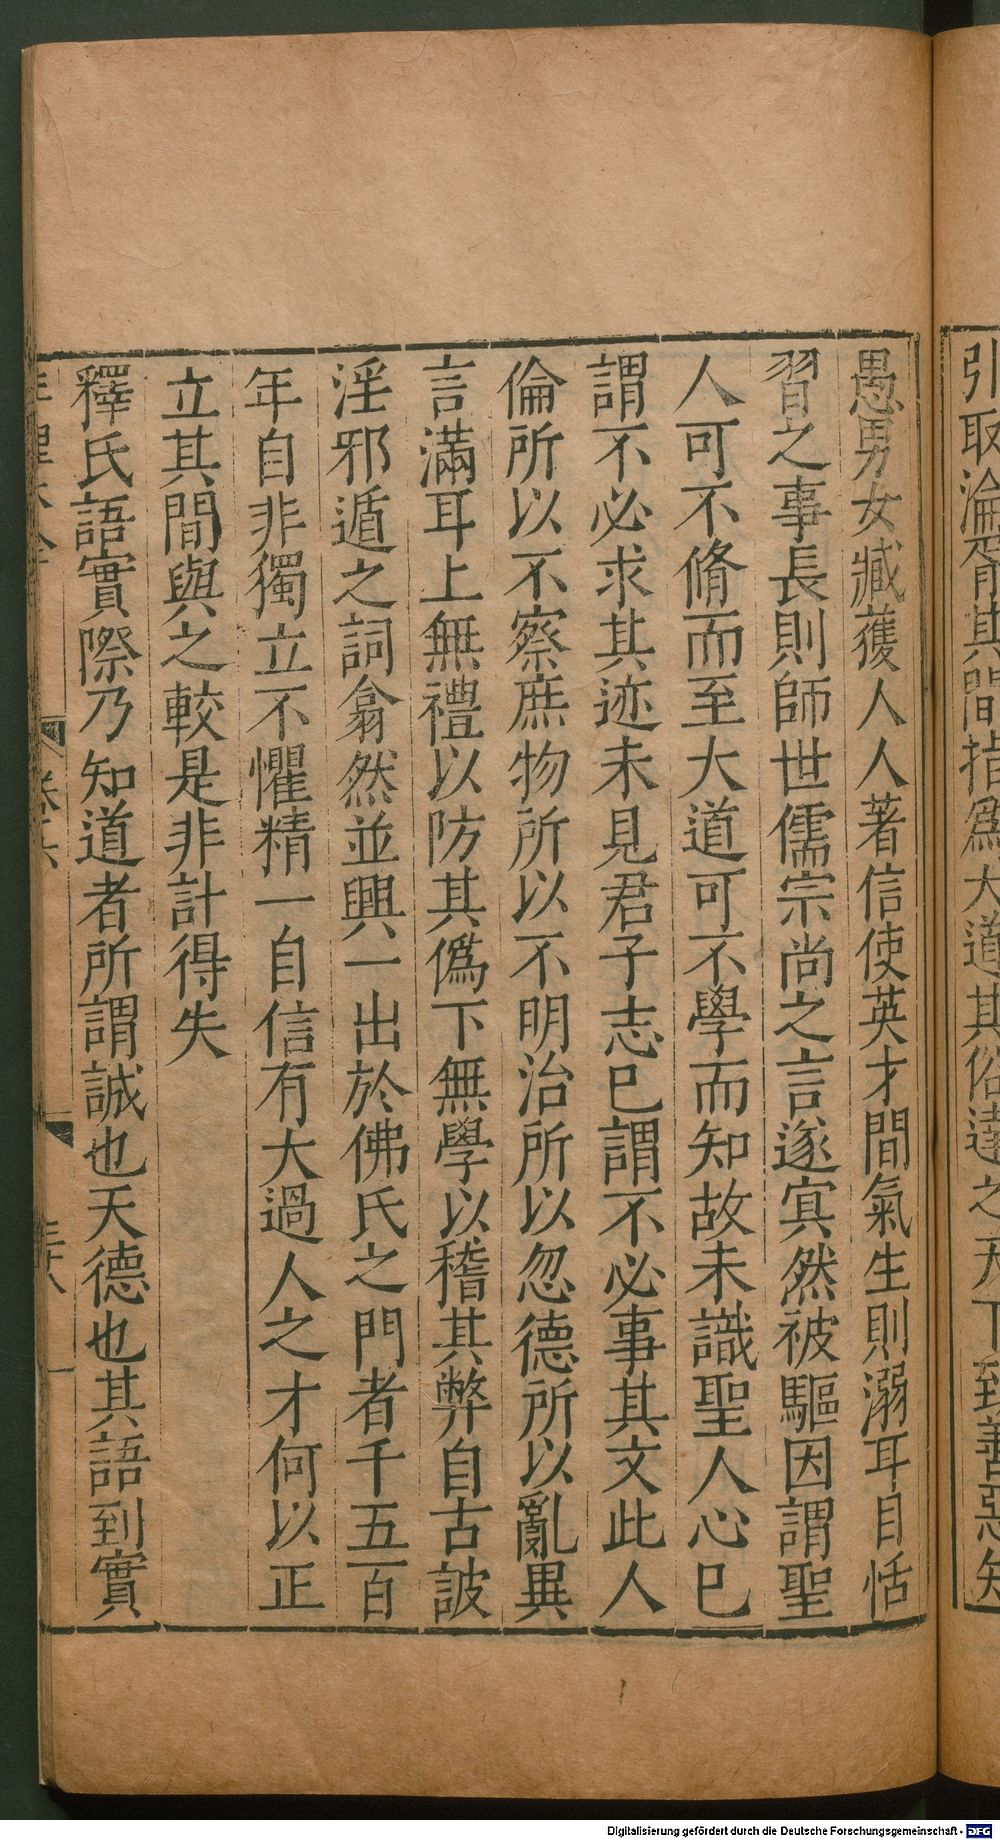 引取淪胥其間指為大道其俗達之天下致善惡知
愚男女臧獲人人著信使英才間氣生則溺耳目恬
習之事長則師世儒宗尚之言遂冥然被驅因謂聖
人可不脩而至大道可不學而知故未識聖人心已
謂不必求其迹未見君子志已謂不必事其文此人
倫所以不察庶物所以不明治所以忽德所以亂異
言滿耳上無禮以防其僞下無學以稽其弊自古詖
淫邪遁之詞翕然並興一出於佛氏之門者千五百
年自非獨立不懼精一自信有大過人之才何以正
立其間與之較是非計得失
釋氏語實際乃知道者所謂誠也天德也其語到實
卷六
三十八
Digitalisierung gefördert durch die Deutsche Forschungsgemeinschaft - DFG